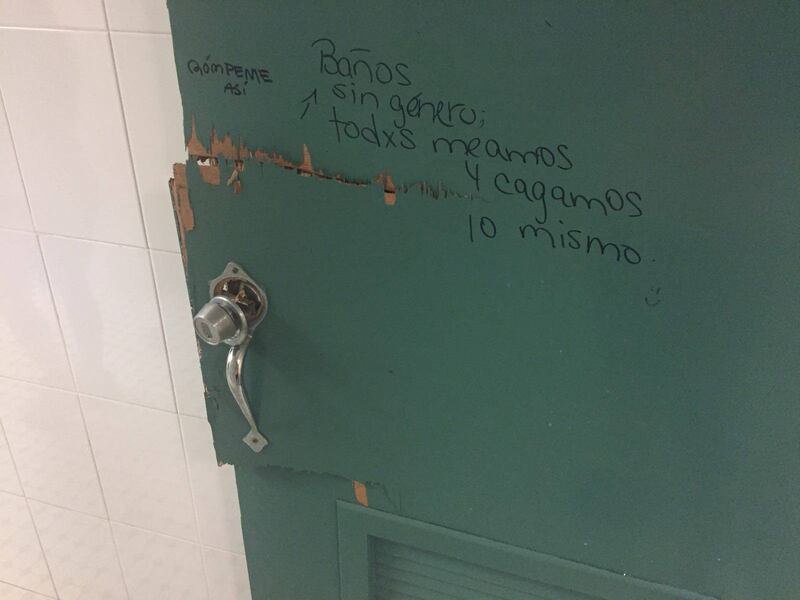 RÓMPEME
ASÍ
Baños
sin género;
todxs meamos
y cagamos
lo mismo.
:)